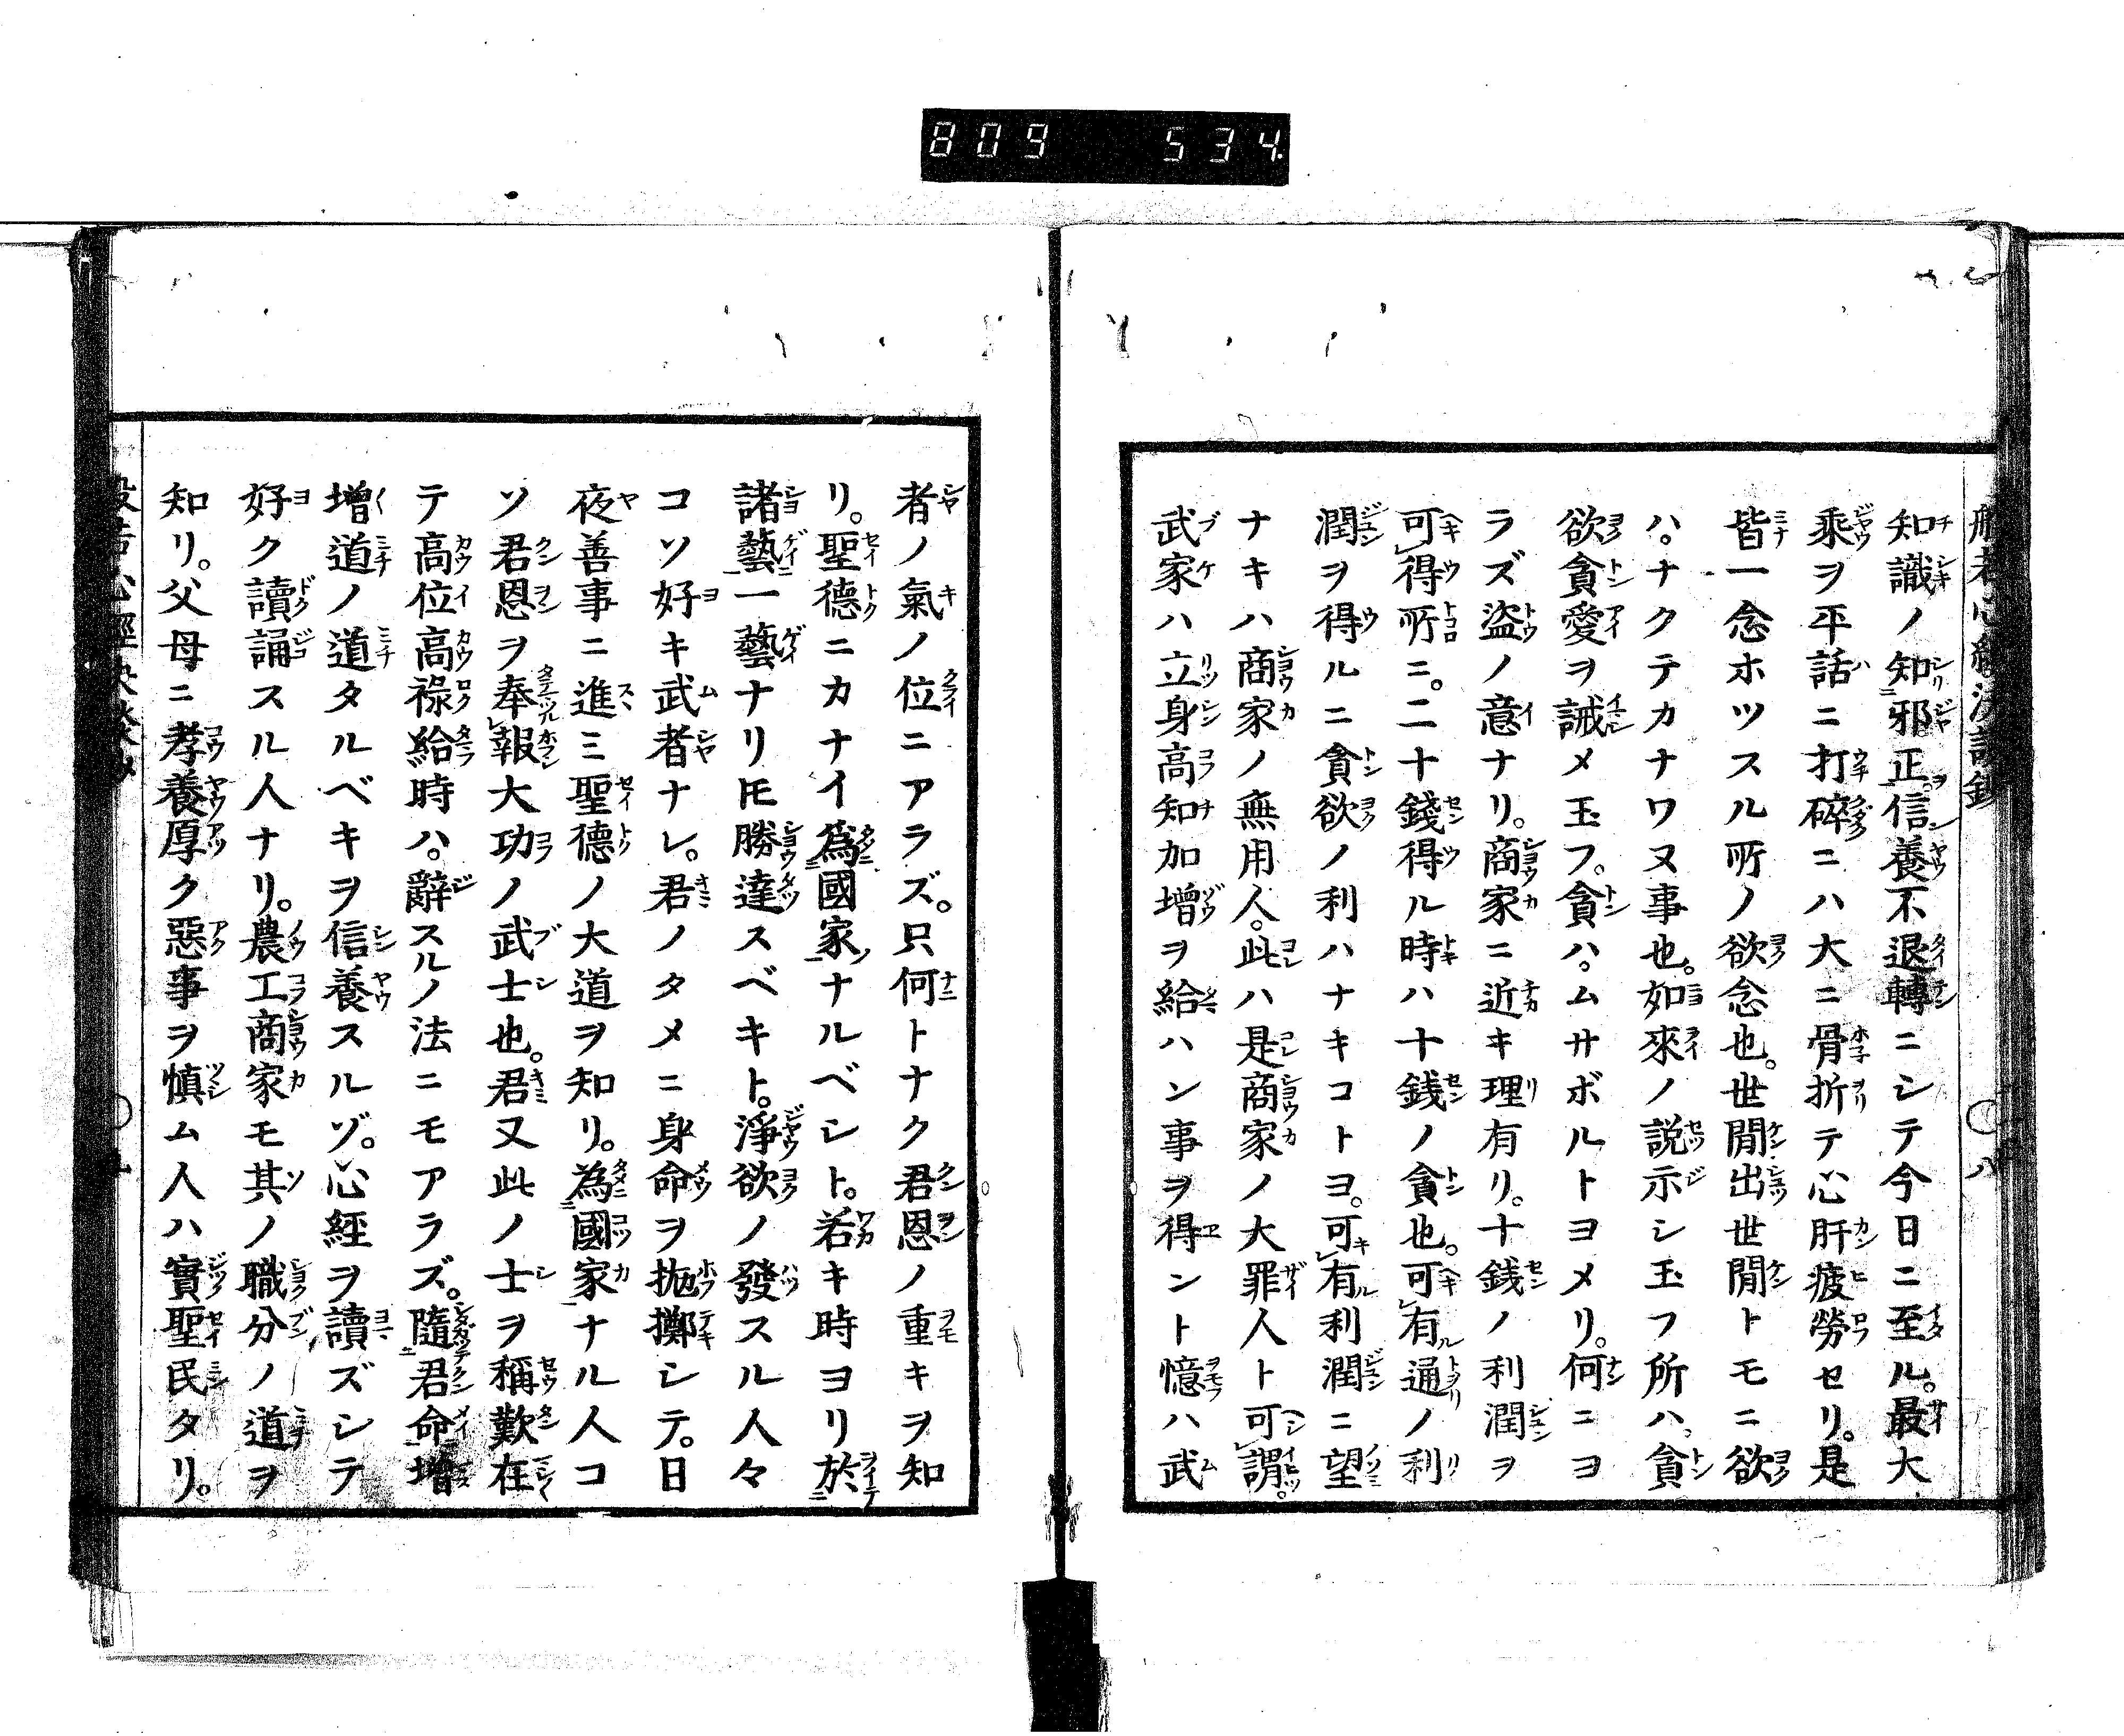 809 534
知識ノ知邪正信養不退轉ニシテ今日ニ至ル。最大
乘ヲ平話ニ打碎ニハ大ニ骨折テ心肝疲勞セリ。是
皆一念ホツスル所ノ欲念也。世間出世間トモニ欲
ハ。ナクテカナワヌ事也。如來ノ說示シ玉フ所ハ、貪
欲貪愛ヲ誡メ玉フ。貪ハ。ムサボルトヨメリ。何ニヨ
ラズ盜ノ意ナリ。商家ニ近キ理有リ。十銭ノ利潤ヲ
可レ得所ニ。二十錢得ル時ハ十銭ノ貪也。可レ有通ノ利
潤ヲ得ルニ貪欲ノ利ハナキコトヨ。可レ有利潤ニ望
ナキハ商家ノ無用人。此ハ是商家ノ大罪人ト可レ謂。
武家ハ立身高知加増ヲ給ハン事ヲ得ント憶ハ武
者ノ氣ノ位ニアラズ。只何トナク君恩ノ重キヲ知
リ。聖德ニカナイ爲二國家一ナルベシト。若キ時ヨリ於二
諸藝一一藝ナリ𪜈勝達スベキト。淨欲ノ發スル人々
コソ好キ武者ナレ。君ノタメニ身命ヲ抛擲シテ。日
夜善事ニ進ミ聖德ノ大道ヲ知リ。為二國家一ナル人コ
ソ君恩ヲ奉レ報大功ノ武士也。君又此ノ士ヲ稱歎在
テ高位高祿給時ハ。辭スルノ法ニモアラズ。隨二君命一増
増道ノ道タルベキヲ信養スルゾ。心経ヲ讀ズシテ
好ク讀誦スル人ナリ。農工商家モ其ノ職分ノ道ヲ
知リ。父母ニ孝養厚ク惡事ヲ慎ム人ハ實聖民タリ。